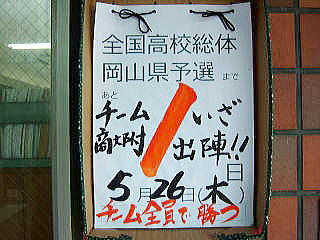 全国高校総体
岡山県予選 まで
あと
1
日
チーム
商大附
いざ
出陣!!
5月26日(木)
チーム全員で勝つ